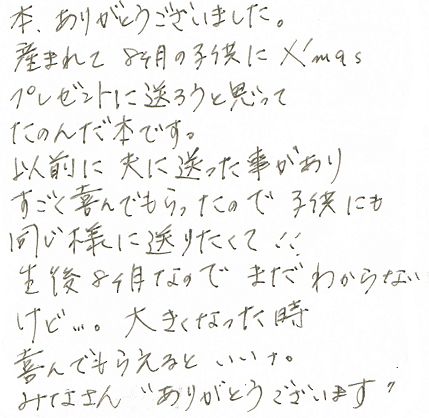 本、ありがとうございました。
産まれて 8ヶ月の子供に X'mas
プレゼントに送ろうと思って
たのんだ本です。
以前に 夫に送った事があり
すごく喜んでもらったので 子供にも
同じ様に送りたくて!!
生後8ヶ月なので まだ わからない
けど…。 大きくなった時
喜んでもらえると いいナ。
みなさん “ありがとうございます”